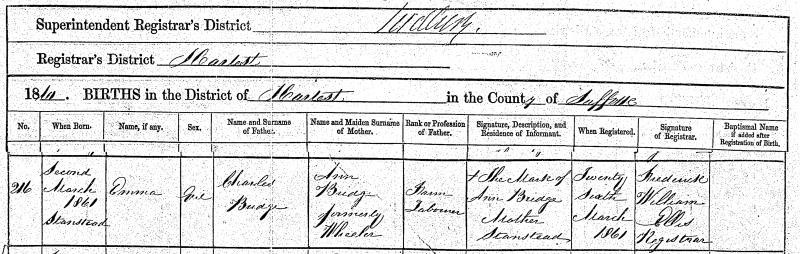 Superintendent Registrar's District Sudbury.
Registrar's District Hartest
1861. BIRTHS in the District of Hartest in the County of Suffolk
No. When Born. Name, if any. Sex. Name and Surname of Father. Name and Maiden Surname of Mother. Rank or Profession of Father. Signature, Description, and Residence of Informant. When Registered. Signature of Registrar. Baptismal Name if added after Registration of Birth.
216
Second
March
1861
Stanstead
Emma
Girl
Charles
Budge
Ann
Budge
formerly
Wheeler
Farm
Labourer
+ The Mark of
Ann Budge
Mother
Stanstead
Twenty
Sixth
March
1861
Frederick
William
Ellis
Registrar